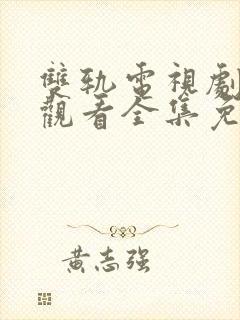 雙軌電視劇
觀看全集免
黃志强